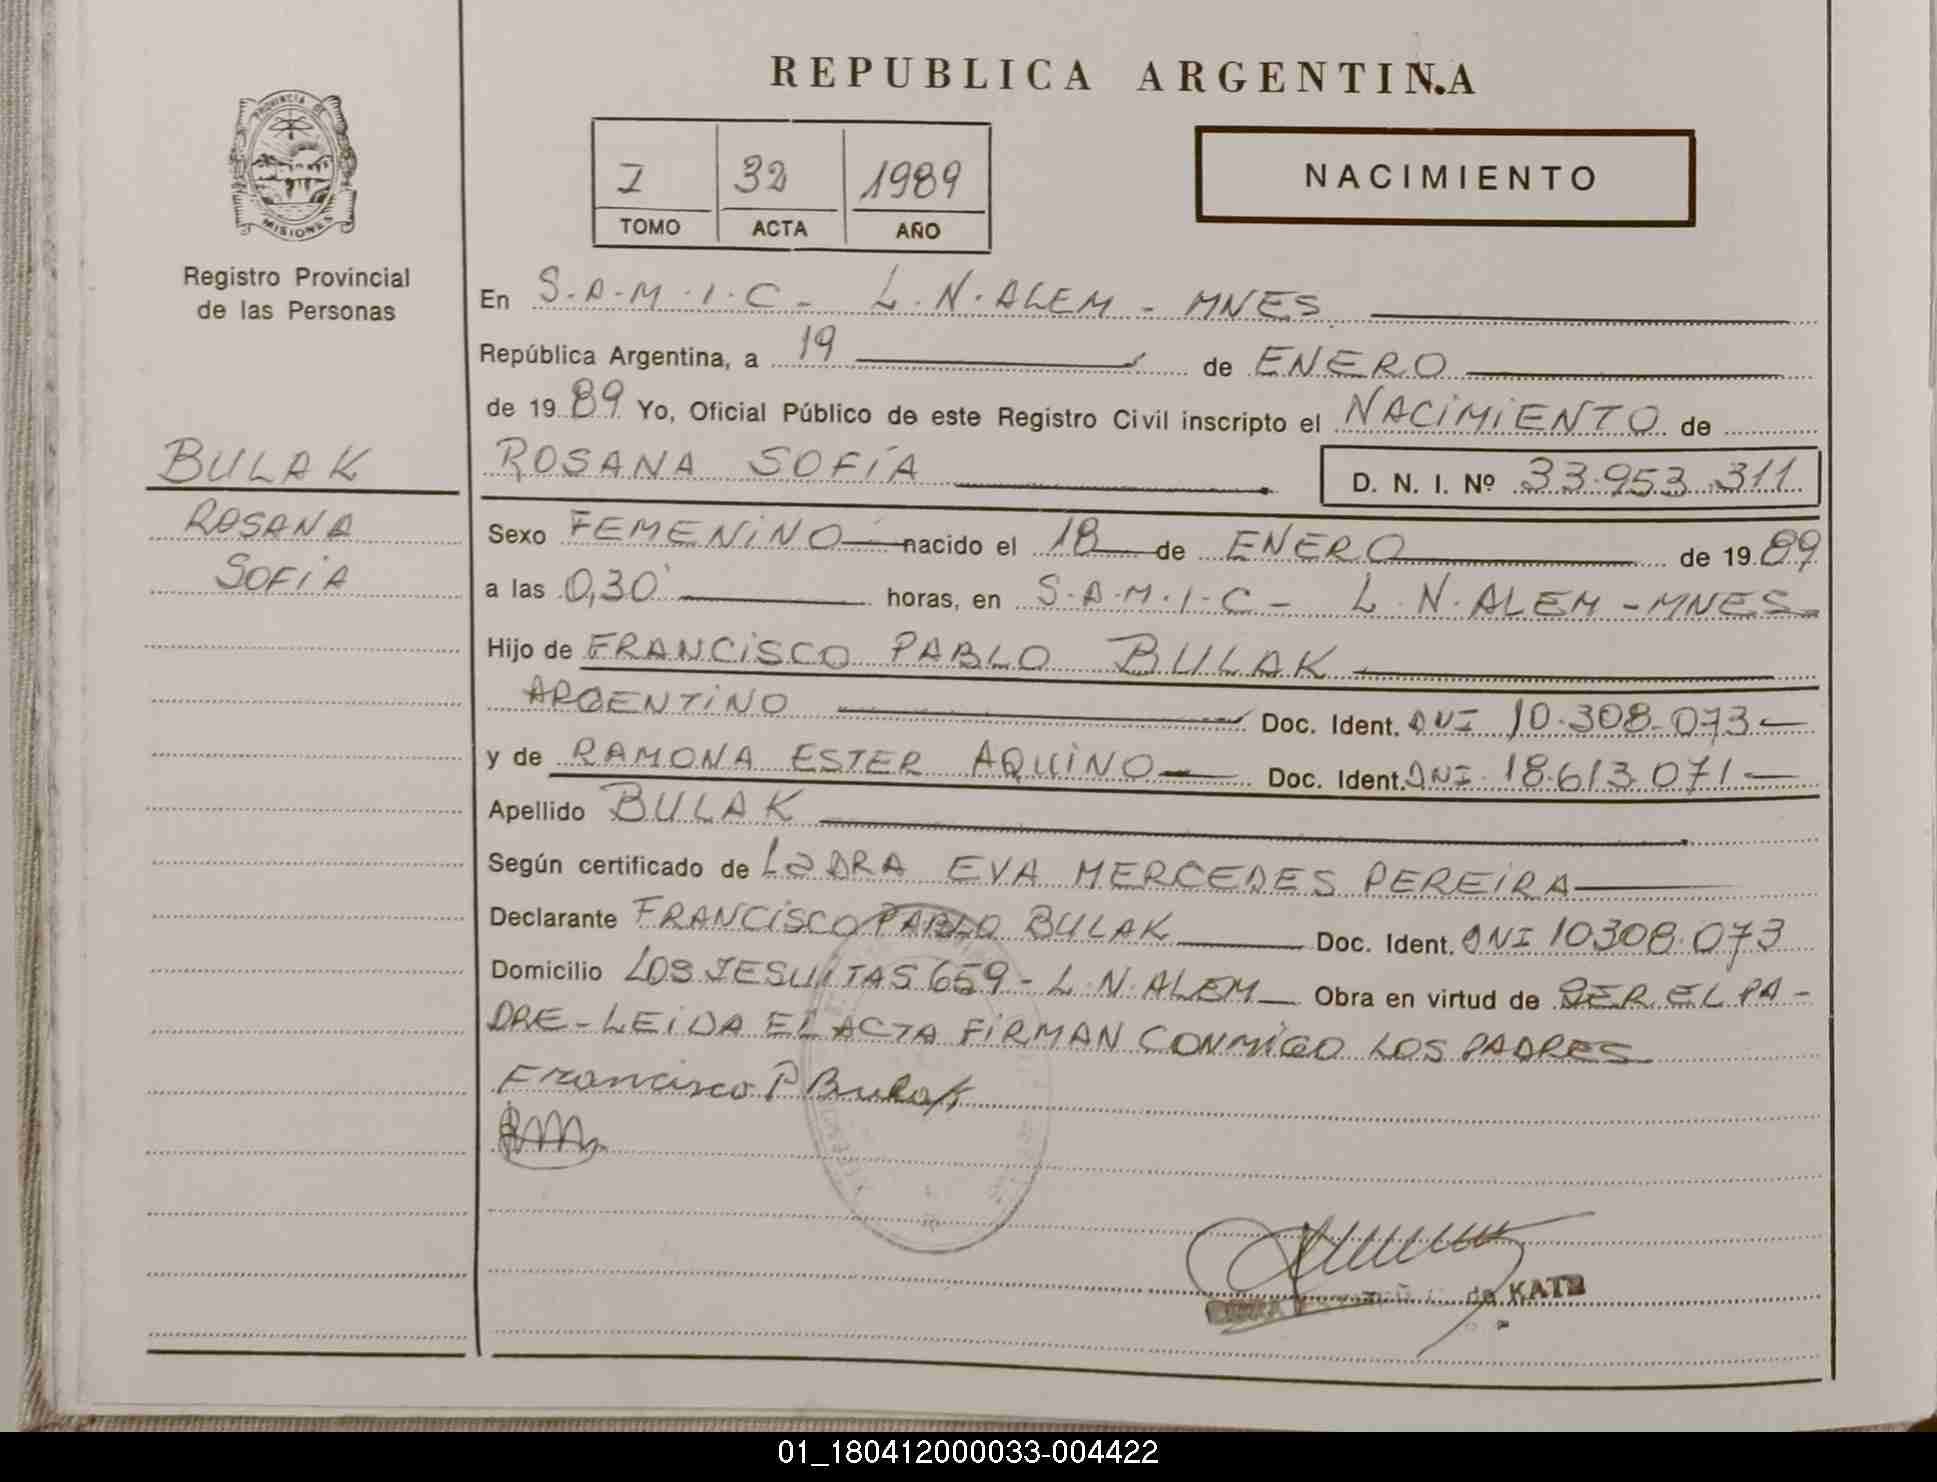 REPUBLICA ARGENTINA
PROVINCIA DE
MISIONES
Registro Provincial
de las Personas
I 32 1989
TOMO ACTA AÑO
NACIMIENTO
En S.A.M.I.C - L.N.ALEM - MNES
República Argentina, a 19 de ENERO
de 1989 Yo, Oficial Público de este Registro Civil inscripto el NACIMIENTO de
BULAK
ROSANA
SOFIA
ROSANA SOFÍA D. N. I. Nº 33.953.311
Sexo FEMENINO nacido el 18 de ENERO de 1989
a las 0,30' horas, en S.A.M.I.C - L.N.ALEM - MNES
Hijo de FRANCISCO PABLO BULAK
ARGENTINO Doc. Ident. DNI 10.308.073
y de RAMONA ESTER AQUINO Doc. Ident. DNI. 18.613.071
Apellido BULAK
Según certificado de LaDRA EVA MERCEDES PEREIRA
Declarante FRANCISCO PABLO BULAK Doc. Ident. DNI 10308.073
Domicilio LOS JESUITAS 659 - L.N.ALEM Obra en virtud de SER EL PA-
DRE - LEIDA EL ACTA FIRMAN CONMIGO LOS PADRES
Francisco P Bulak
de KATZ
01_180412000033-004422